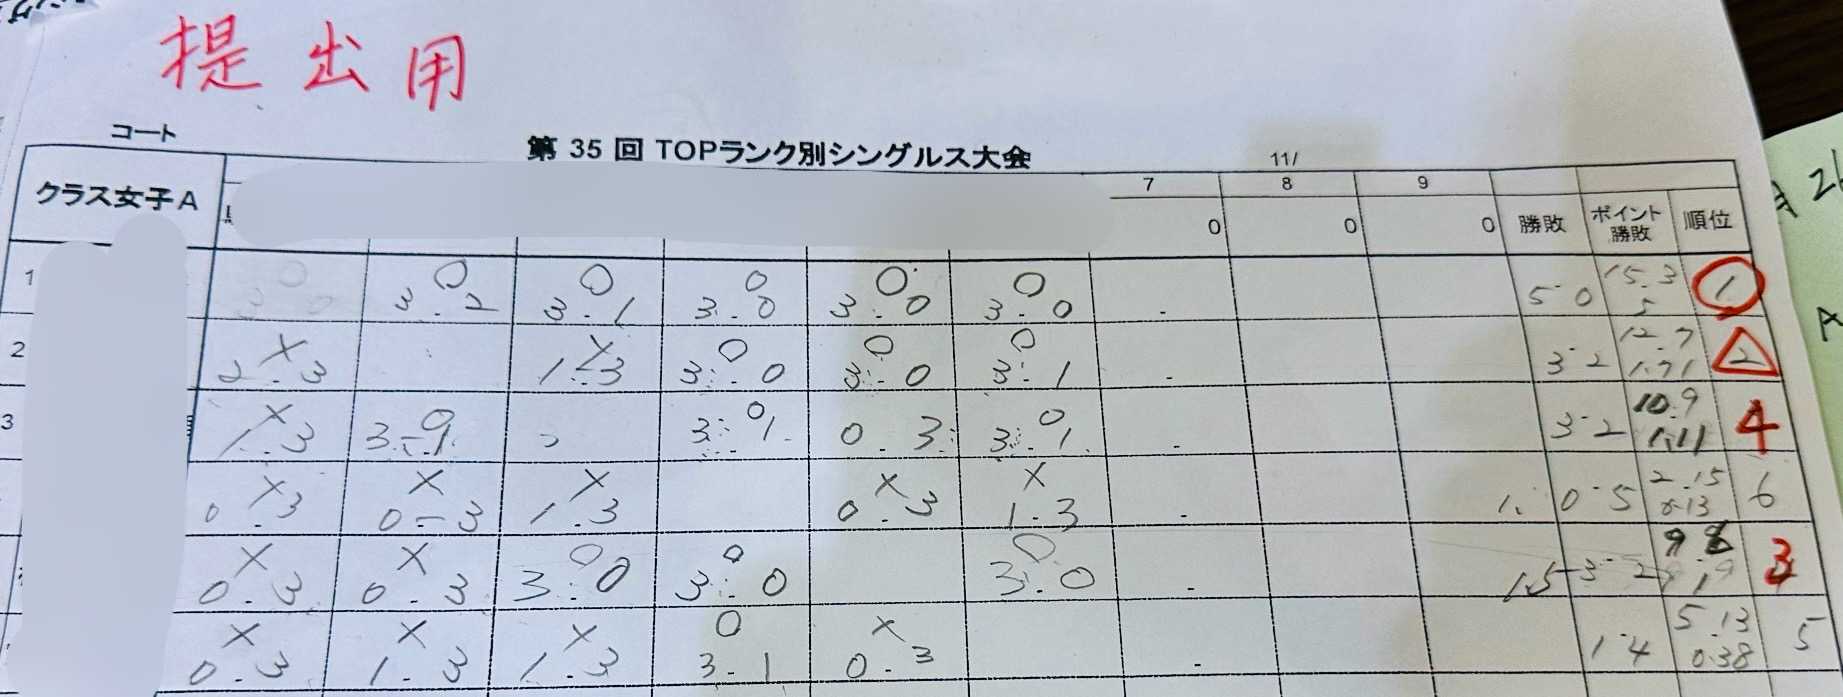 提出用
コート
第 35 回 TOPランク別シングルス大会 11/
クラス女子A 7 8 9
0 0 0 勝敗 ポイント勝敗 順位
1 3-2 3-1 3-0 3-0 3-0 - 5-0 15-3 5 1
2 2-3 1-3 3-0 3-0 3-1 - 3-2 12-7 1.71 2
3 1-3 3-1 3-1 0-3 3-1 - 3-2 10-9 1.11 4
0-3 0-3 1-3 0-3 1-3 - 0-5 2-15 0.13 6
0-3 0-3 3-0 3-0 3-0 - 3-2 3
0-3 1-3 1-3 3-1 0-3 - 1-4 5-13 0.38 5